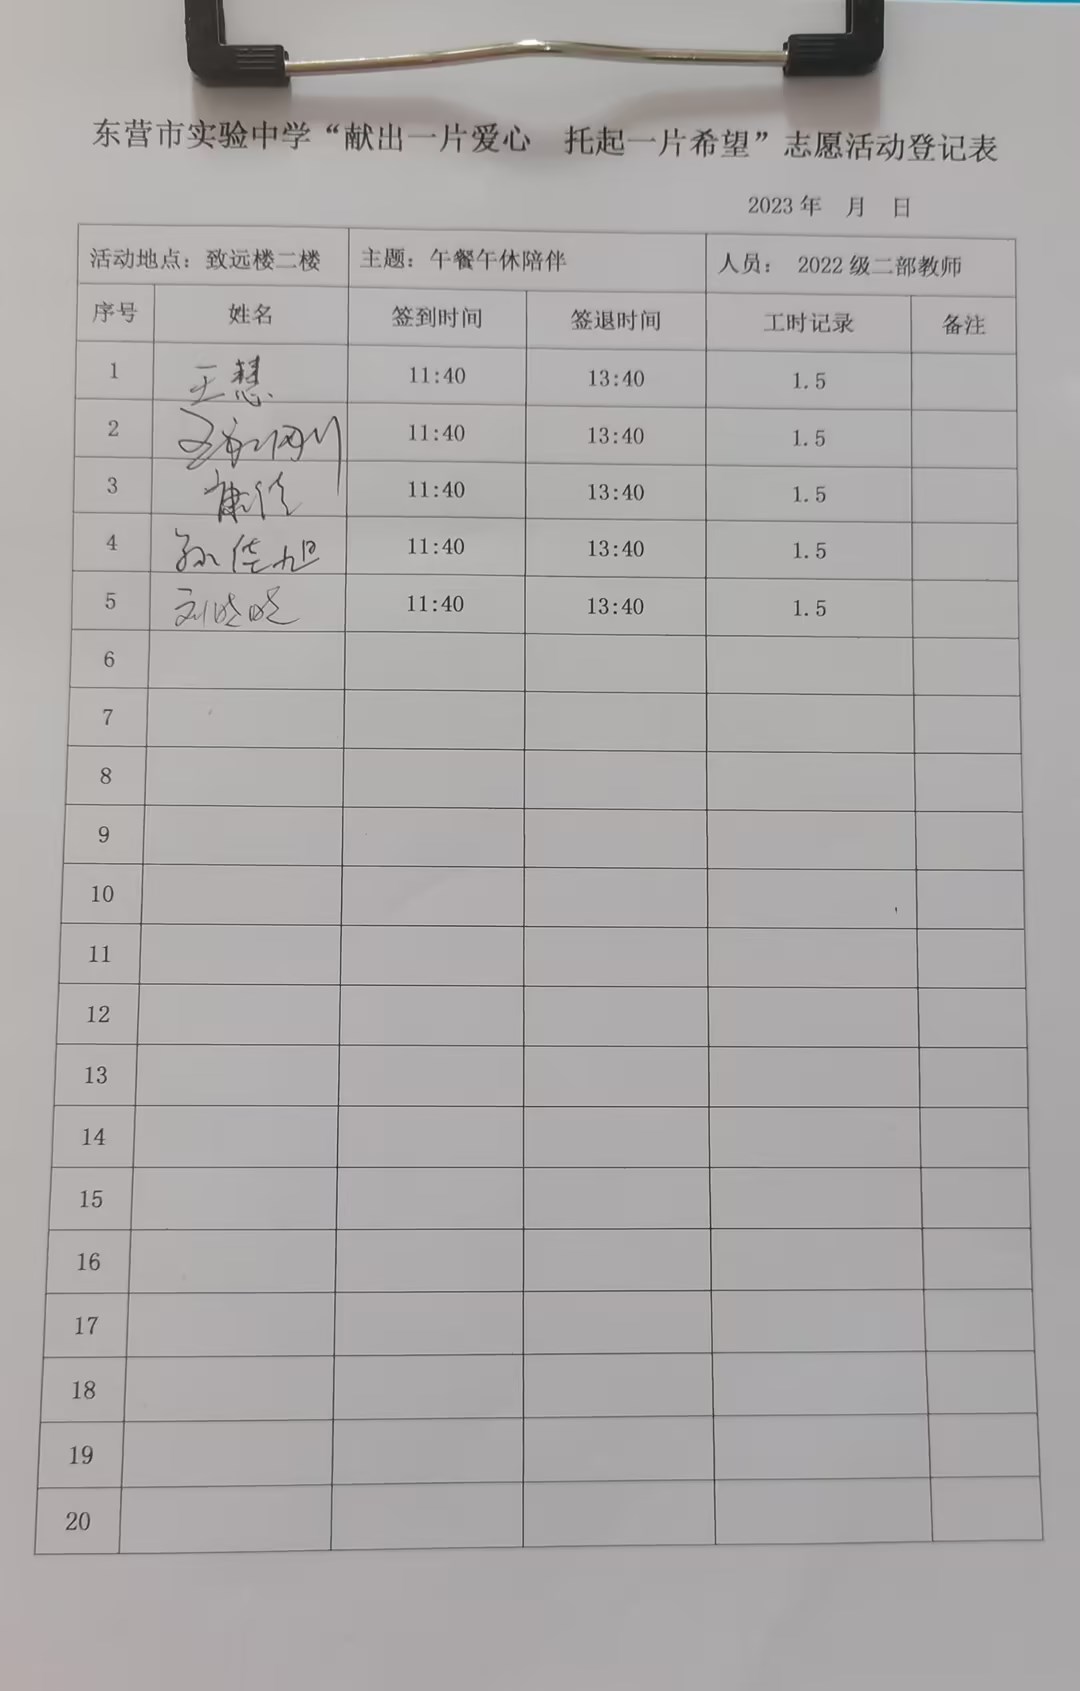 东营市实验中学“献出一片爱心 托起一片希望”志愿活动登记表
2023 年 月 日
活动地点：致远楼二楼 主题：午餐午休陪伴 人员： 2022 级二部教师
序号 姓名 签到时间 签退时间 工时记录 备注
1 王慧 11:40 13:40 1.5
2 11:40 13:40 1.5
3 11:40 13:40 1.5
4 孙佳旭 11:40 13:40 1.5
5 刘晓晓 11:40 13:40 1.5
6
7
8
9
10
11
12
13
14
15
16
17
18
19
20